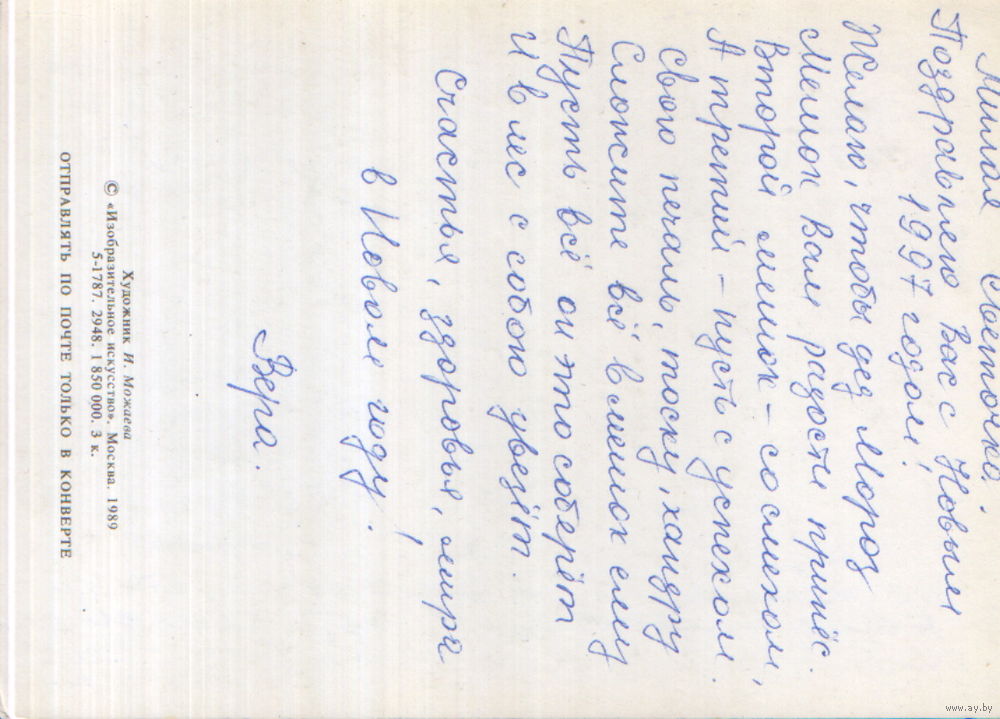 Милая Светочка!
Поздравляю Вас с Новым
1997 годом!
Желаю, чтобы дед Мороз
Мешок Вам радости принёс.
Второй мешок – со смехом,
А третий – пусть с успехом.
Свою печаль, тоску, хандру
Сложите всё в мешок ему
Пусть всё он это соберёт
И в лес с собою увезёт.
Счастья, здоровья, мира
в Новом году!
Вера.
Художник И. Можаева
© «Изобразительное искусство». Москва. 1989
5-1787. 2948. 1 850 000. 3 к.
ОТПРАВЛЯТЬ ПО ПОЧТЕ ТОЛЬКО В КОНВЕРТЕ
www.ay.by